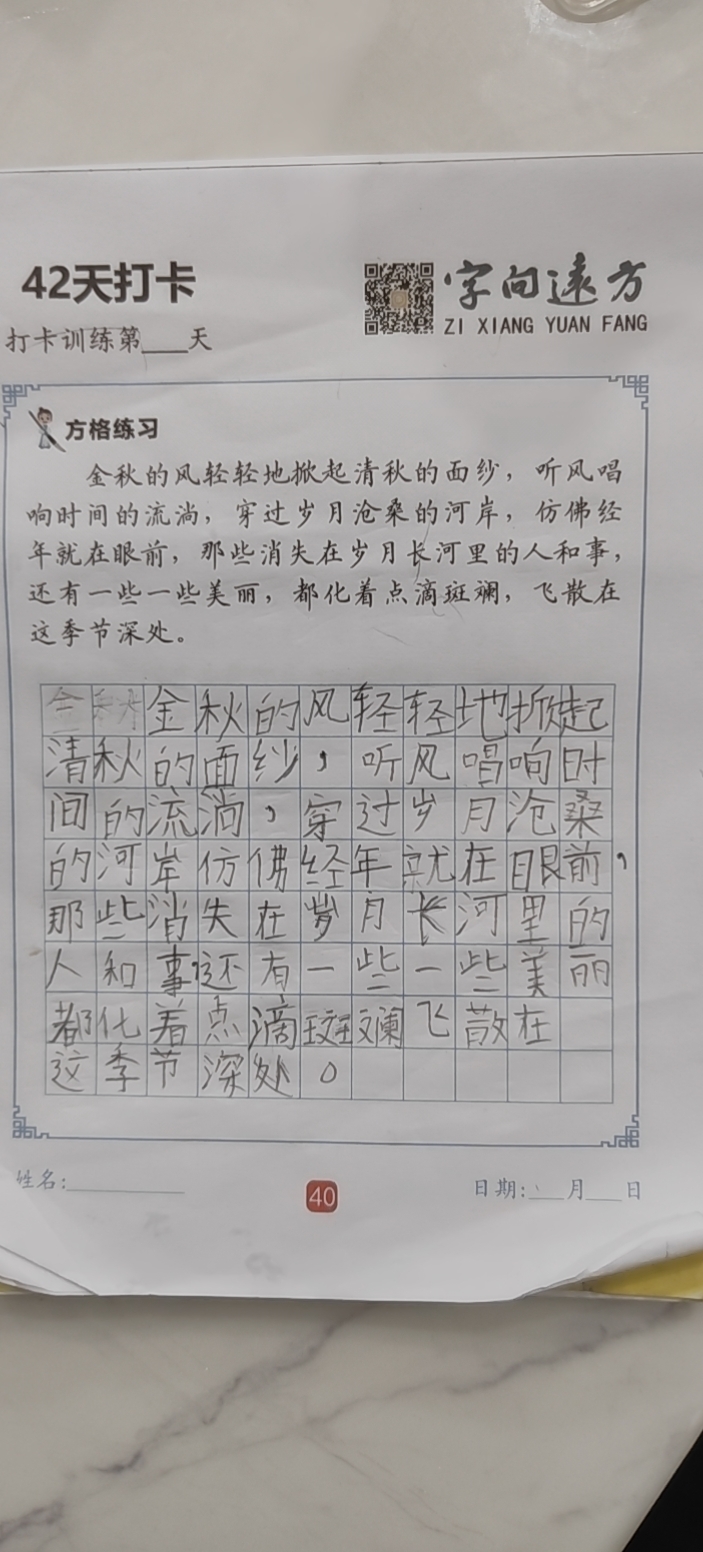 42天打卡
字向远方
ZI XIANG YUAN FANG
打卡训练第___天
方格练习
金秋的风轻轻地掀起清秋的面纱，听风唱
响时间的流淌，穿过岁月沧桑的河岸，仿佛经
年就在眼前，那些消失在岁月长河里的人和事，
还有一些一些美丽，都化着点滴斑斓，飞散在
这季节深处。
金秋金秋的风轻轻地掀起
清秋的面纱，听风唱响时
间的流淌，穿过岁月沧桑
的河岸仿佛经年就在眼前，
那些消失在岁月长河里的
人和事，还有一些一些美丽
都化着点滴斑斓飞散在
这季节深处。
姓名:________
40
日期:___月___日